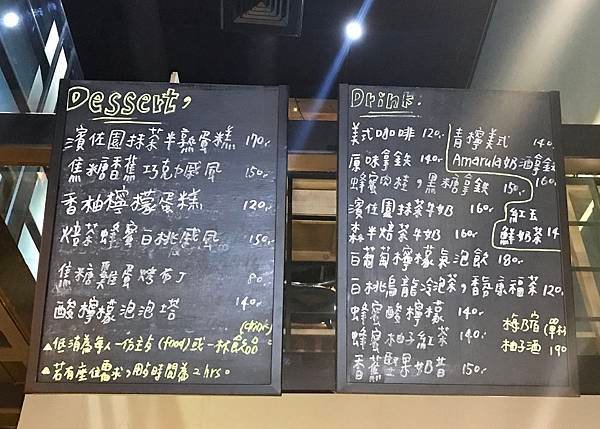 Dessert,
濱佐園抹茶半熟蛋糕 170.
焦糖香蕉巧克力戚風 150.
香柚檸檬蛋糕 120.
焙茶蜂蜜白桃戚風 150.
焦糖雞蛋烤布丁 80.
酸檸檬泡泡塔 140.
(drink)
▲低消為每人一份主点(food)或一杯飲品。
▲若有座位需求,用時間為2hrs。
Drink.
美式咖啡 120.
原味拿鐵 140.
蜂蜜肉桂,黑糖拿鐵 150.
濱佐園抹茶牛奶 160.
森半焙茶牛奶 160.
白葡萄檸檬氣泡飲 180.
白桃烏龍冷泡茶,香馨康福茶 120.
蜂蜜酸檸檬 140.
蜂蜜柚子紅茶 140.
香蕉堅果奶昔 150.
青檸美式 140.
Amarula奶酒拿鐵 160.
紅玉
鮮奶茶 14
梅乃宿
柚子酒 190